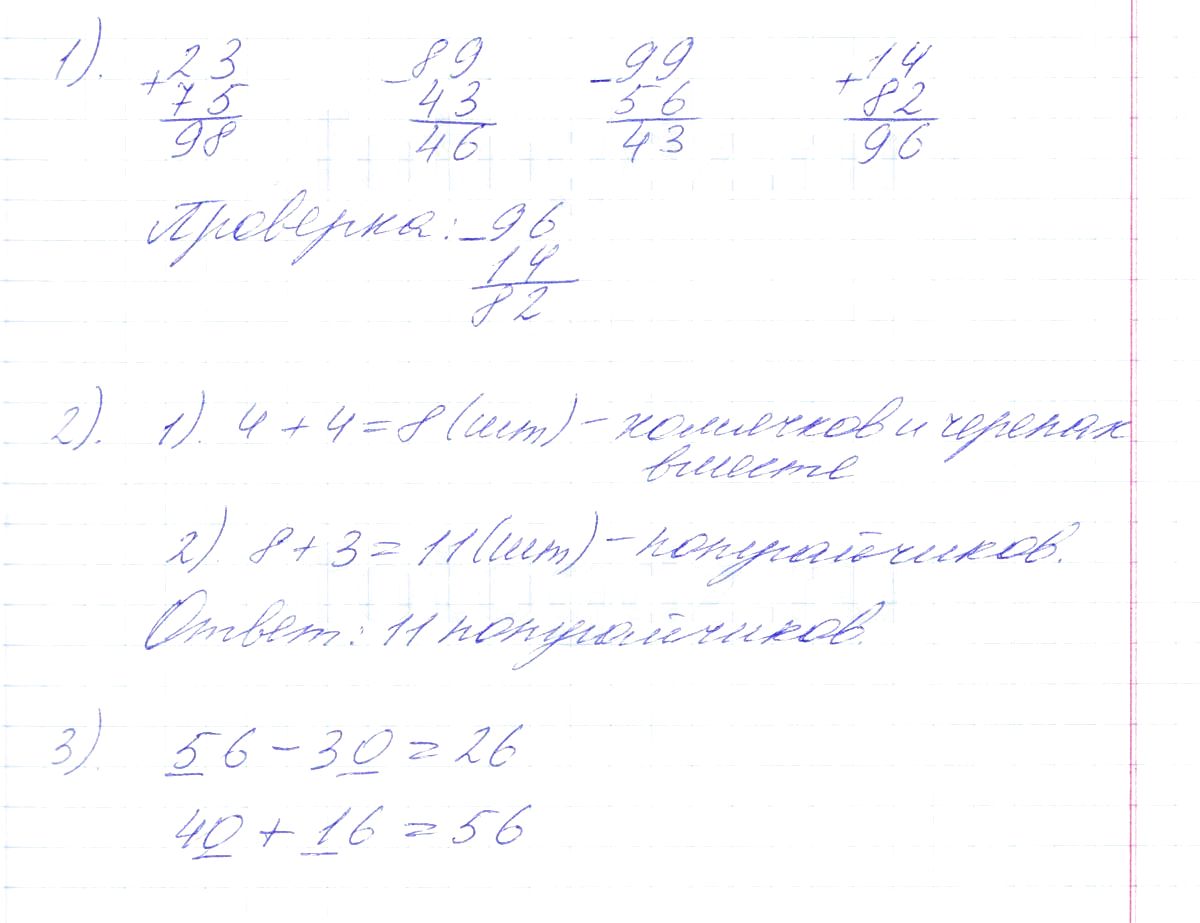 1). +23 -89 -99 +14
75 43 56 82
98 46 43 96
Проверка: -96
14
82
2). 1). 4 + 4 = 8 (шт) - хомячков и черепах
вместе
2) 8 + 3 = 11 (шт) - попугайчиков.
Ответ: 11 попугайчиков.
3) 56 - 30 = 26
40 + 16 = 56